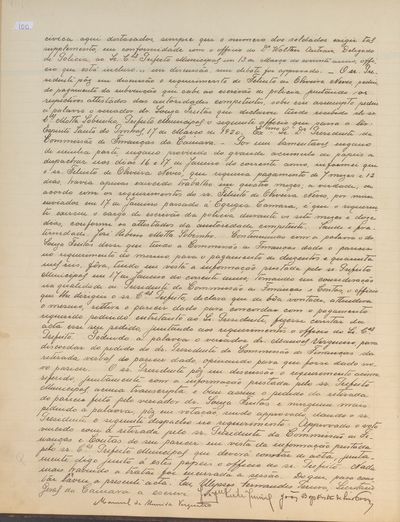 100
civica aqui destacados sempre que o numero dos soldados exigir tal
supplemento, em conformidade com o officio do Dr. Delegado
de Policia, ao Prefeito Municipal em 13 de Março do corrente anno, officio
que está incluso, em discussão, sem debate foi approvado. O Sr. Pre-
sidente põz em discussão o requerimento de de Oliveira Neves, pedin-
do pagamento da subvenção que cabe ao escrivão de policia, juntando os
respectivos attestados das autoridades competentes, sobre este assumpto pedeu
a palavra o vereador de Souza Freitas que declarou tendo recebido do
Prefeito Municipal o seguinte officio que passa a ler:
Espirito Santo do Pinhal, 17 de Março de 1920. Exmo. Sr. Dr. Presidente da
Commissão de Finanças da Camara. Por um lamentavel engano
de minha parte, engano provindo do grande accumulo de papeis a
despachar nos dias 16 e 17 de Janeiro do corrente anno, informei que
o sr. de Oliveira Neves, que requereu pagamento de 7 mezes e 12
dias, havia apenas exercido trabalhos em quatro mezes, a verdade, de
accordo com os requerimentos do sr. de Oliveira Neves, por mim
enviados em 17 de Janeiro passado á Egregia Camara, é que o requeren-
te exerceu o cargo de escrivão da policia durante os sete mezes e doze
dias, conforme os attestados da autoridade competente. Saude e fra-
ternidade. Continuando com a palavra o de
Souza Freitas disse que tendo a Commissão de Finanças dado o parecer
no requerimento do mesmo para o pagamento de duzentos e quarenta
mil reis, agora, tendo em vista a informação prestada pelo sr. Prefeito
Municipal em 17 de Janeiro do corrente anno, tomando em consideração
na qualidade de Presidente da Commissão de Finanças e Contas, o officio
que lhe dirigiu o sr. Prefeito, declara que de boa vontade, attendendo
o mesmo, retira o parecer dado para concordar com o pagamento
requerido pedindo entretanto ao Sr. Presidente, fizesse constar da
acta esse seu pedido, juntando aos requerimentos o officio do Sr.
Prefeito. Pedindo a palavra o vereador de Menezes Vergueiro para
discordar do pedido do sr. Presidente da Commissão de Finanças da
retirada verbal do parecer dado, opinando para que fosse dado no-
vo parecer. O sr. Presidente põz em discussão o requerimento acima
referido juntamente com a informação prestada pelo sr. Prefeito
Municipal, acima transcripta e bem assim o pedido da retirada
do parecer feito pelo vereador de Souza Freitas e ninguem mais
pedindo a palavra, põz em votação sendo approvado, dando o sr.
Presidente o seguinte despacho no requerimento: Approvado o voto
vencido com a retirada pelo sr. Presidente da Commissão de Fi-
nanças e Contas do seu parecer em vista da informação prestada
pelo sr. Prefeito Municipal que deverá constar da acta, junta-
mente digo junto a estes papeis o officio do sr. Prefeito. Nada
mais havendo a tratar foi encerrada a sessão. Do que, para cons-
tar lavrei a presente acta. Eu, Ulysses Fernandes Pereira, Secretario
Geral da Camara a escrevi.